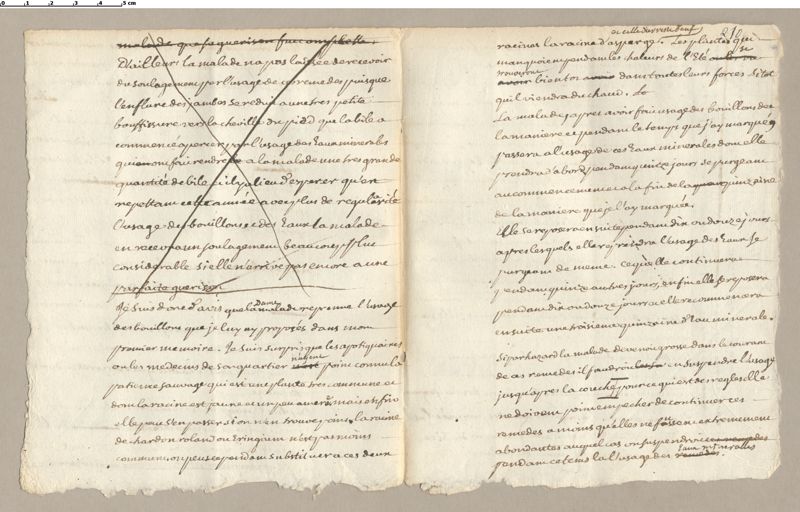 malade que sa guerison fut complette.
D'ailleurs la malade n'a pas laissée de recevoir
du soulagement par l'usage de ces remedes puisque
l'enflure des jambes se reduit a une tres petite
bouffissure vers la cheville du pied que la bile a
commencé a percer par l'usage des eaux minerales
qui en ont fait rendre a la malade une tres grande
quantité de bile et il y a lieu d'esperer qu'en
repettant cette année avec plus de regularité
l'usage des bouillons et des eaux la malade
en recevra un soulagement beaucoup plus
considerable si elle n'arrive pas encore a une
parfaite guerison
Je suis donc d'avis que la Dame malade reprenne l'usage
des bouillons que je luy ay proposés dans mon
premier memoire. Je suis surpris que les apotiquaires
ou les medecins de son quartier n'ayent point connu la
patience sauvage qui est une plante tres commune et
dont la racine est jaune et un peu amere mais enfin
elle peut s'en passer si on n'en trouve point, la racine
de chardon roland ou Eringium n'est pas moins
commune on peut cependant substituer a ces deux
et celle d'arreste beuf
racines la racine d'asperge. Les plantes qui
manquoient pendant les chaleurs de l'Eté
trouveront bientost dans toutes leurs forces si tost
qu'il viendra du chaud.
La malade apres avoir fait usage des bouillons de
la maniere et pendant le temps que j'ay marqué
passera a l'usage de ces Eaux minerales dont elle
prendra d'abord pendant quinze jours se purgeant
au commencement et a la fin de la quinzaine
de la maniere que je l'ay marqué.
Elle se reposera ensuite pendant dix ou douze jours
apres lesquels elle reprendra l'usage des Eaux se
purgeant de meme. ce qu'elle continuera
pendant quinze autres jours, enfin elle se reposera
pendant dix ou douze jours et elle recommencera
ensuite une troisieme quinzaine d'Eau minerale.
Si par hazard la malade devenoit grosse dans le courant
de ces remedes il faudroit en suspendre l'usage
jusqu'apres la couche pour ce qui est des regles elle
ne doivent point empecher de continuer ces
remedes a moins quelles ne fussent extremement
abondantes auquel cas on suspendroit
pendant ce tems la l'usage des eaux minerales